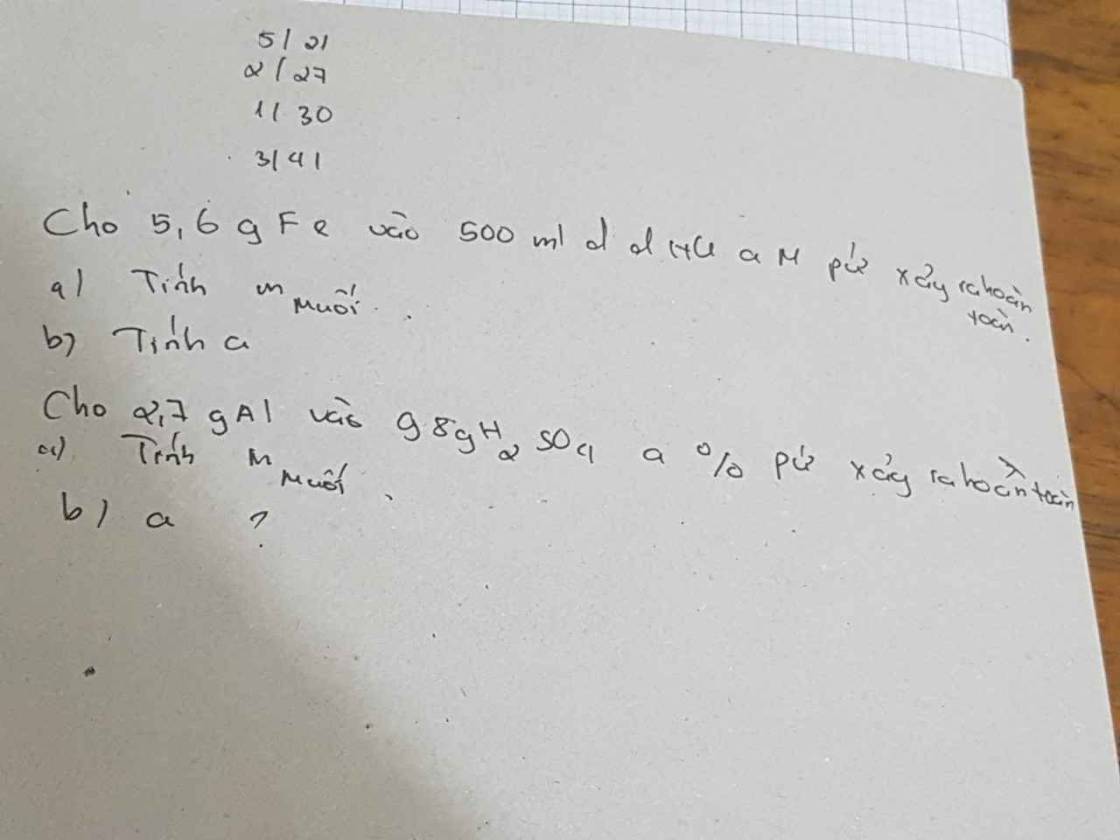 5/ 21
2/ 27
1/ 30
3/ 41
Cho 5,6 g Fe vào 500 ml d d HCl a M pứ xảy ra hoàn toàn.
a) Tính m muối.
b) Tính a
Cho 2,7 g Al vào 98g H2SO4 a % pứ xảy ra hoàn toàn
a) Tính m muối.
b) a ?